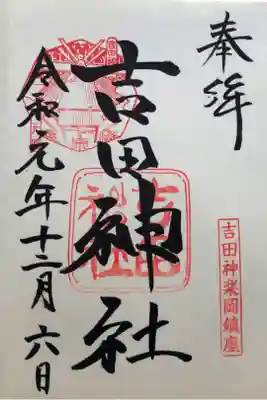 奉拝
吉田神楽岡鎮座
吉田神社
吉田
神社
令和元年十二月六日